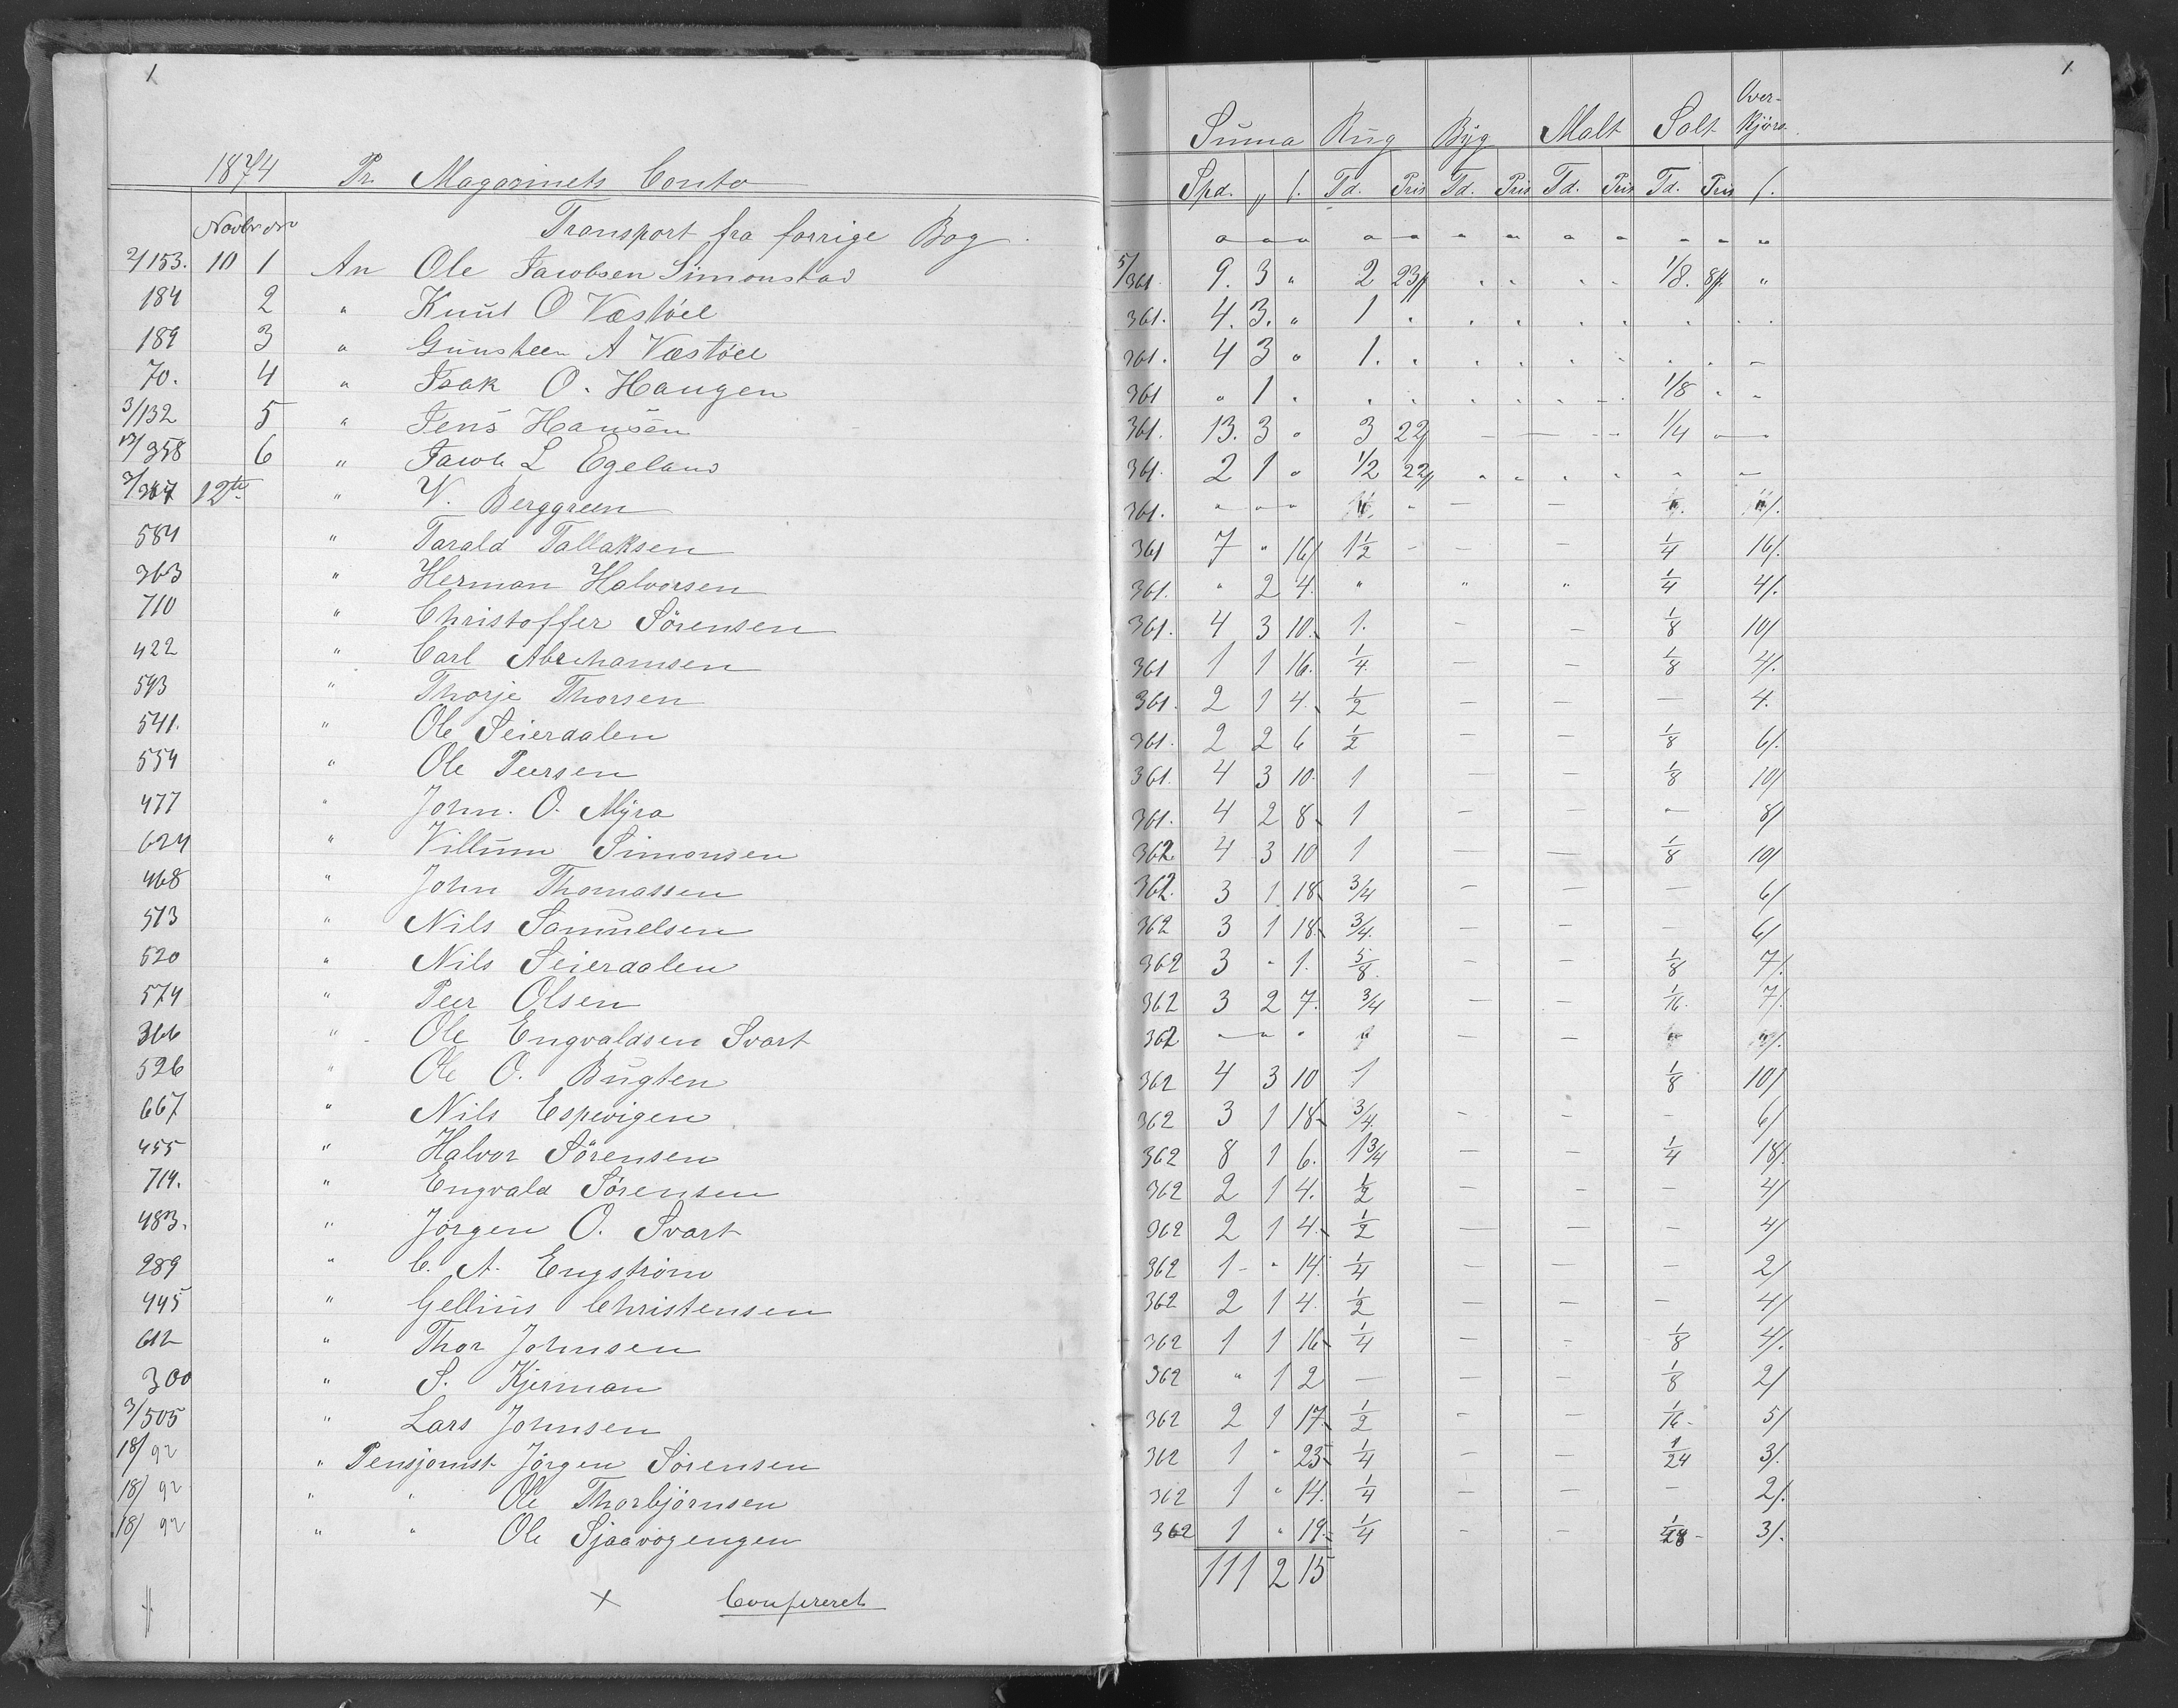 1
1874 Pr Magasinets Conto
Novbr
Transport fra forrige Bog.
2/153. 10 1 An Ole Jacobsen Simonstad
184 2 " Knut O Væstöel
189 3 " Gunsteen A Væstöel
70. 4 " Isak O. Haugen
3/132 5 " Jens Hansen
12/358 6 " Jacob L Egeland
12te " W. Berggreen
584 " Tarald Tallaksen
363 " Herman Halvorsen
710 " Christoffer Sörensen
422 " Carl Abrahamsen
593 " Thorje Thorsen
541. " Ole Seierdalen
554 " Ole Peersen
477 " John. O. Myra
624 " Villum Simonsen
468 " John Thomassen
513 " Nils Samuelsen
520 " Nils Seierdalen
574 " Peer Olsen
366 " Ole Engvaldsen Svart
526 " Ole O. Bugten
667 " Nils Espevigen
455 " Halvor Sörensen
714. " Engvald Sörensen
483. " Jörgen O. Svart
289 " C. A. Engström
445 " Gellius Christensen
612 " Thor Johnsen
300 " S. Kjerman
3/505 " Lars Johnsen
18/92 " Pensjonist Jörgen Sörensen
18/92 " " Ole Thorbjörnsen
18/92 " " Ole Sjaavogengen
x Confereret
1
Suma Rug Byg Malt Salt Over-kjörs.
Spd. " ſ. Td. Pris Td. Pris Td. Pris Td. Pris ſ.
5/361 9. 3 " 2 23ſ 1/8. 8ſ "
361. 4. 3. " 1
361. 4 3 " 1.
361 " 1 . 1/8
361. 13. 3 " 3 22ſ — — 1/4
361. 2 1 " 1/2 22ſ
361. " " " — —
361 7 " 16/ 1 1/2 — — 1/4 16/.
361. " 2 4. " " " 1/4 4/.
361. 4 3 10. 1. — — 1/8 10/
361 1 1 16. 1/4 — — 1/8 4/.
361. 2 1 4. 1/2 — — — 4.
361. 2 2 6 1/2 — — 1/8 6/.
361. 4 3 10. 1 — — 1/8 10/
361. 4 2 8 1 — — — 8/
362 4 3 10 1 — — 1/8 10/
362. 3 1 18 3/4 — — — 6/
362 3 1 18 3/4. — — — 6/
362 3 " 1. 5/8. — — 1/8 7/.
362 3 2 7. 3/4 — — 1/16. 7/.
362 " " " — —
362 4 3 10 1 1/8 10/
362 3 1 18 3/4. — — — 6/
362 8 1 6. 1 3/4 — — 1/4 18/.
362 2 1 4. 1/2 — — — 4/
362 2 1 4. 1/2 — — — 4/
362 1 " 14. 1/4 — — — 2/
362 2 1 4. 1/2 — — — 4/
362 1 1 16 1/4 — — 1/8 4/.
362 " 1 2 — — — 1/8 2/
362 2 1 17. 1/2 — — 1/16. 5/
362 1 " 23 1/4 — — 1/24 3/.
362 1 " 14. 1/4 — — — 2/.
362 1 " 19. 1/4 — — 3/.
111 2 15